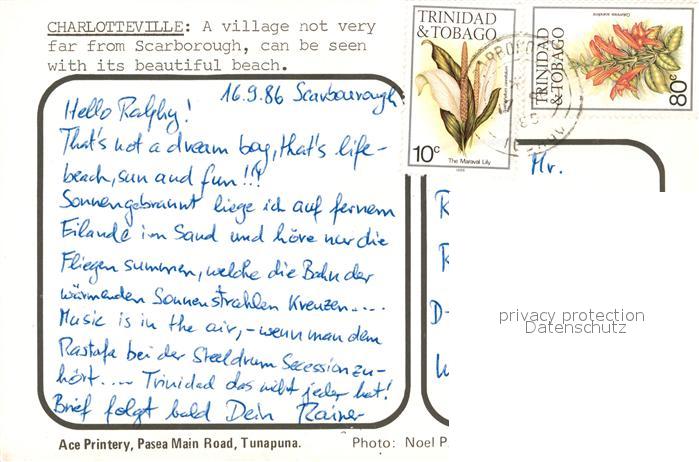 CHARLOTTEVILLE: A village not very
far from Scarborough, can be seen
with its beautiful beach.
TRINIDAD
& TOBAGO
10c
The Maraval Lily
1985
TRINIDAD
& TOBAGO
80c
16.9.86 Scarbourough
Hello Ralphy!
That's not a dream boy, that's life-
beach, sun and fun!!!
Sonnengebrannt liege ich auf fernem
Eilande im Sand und höre nur die
Fliegen summen, welche die Bahn der
wärmenden Sonnenstrahlen Kreuzen....
Music is in the air, - wenn man dem
Rastafa bei der Steeldrum Secession zu-
hört.... Trinidad das nicht jeder hat!
Brief folgt bald Dein Rainer
Mr.
R
R
D-
privacy protection
Datenschutz
Ace Printery, Pasea Main Road, Tunapuna.
Photo: Noel P.